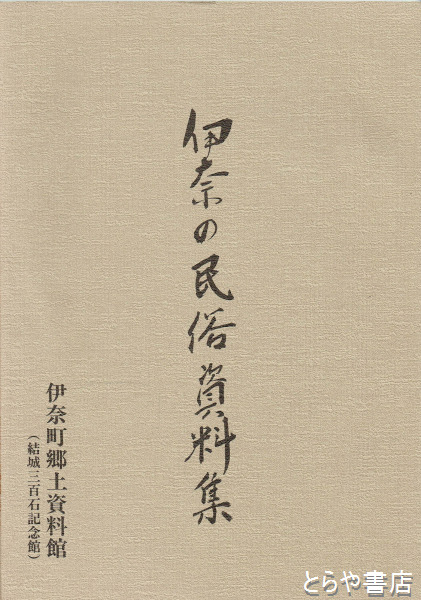 伊奈の民俗資料集
伊奈町郷土資料館
（結城三百石記念館）
とらや書店